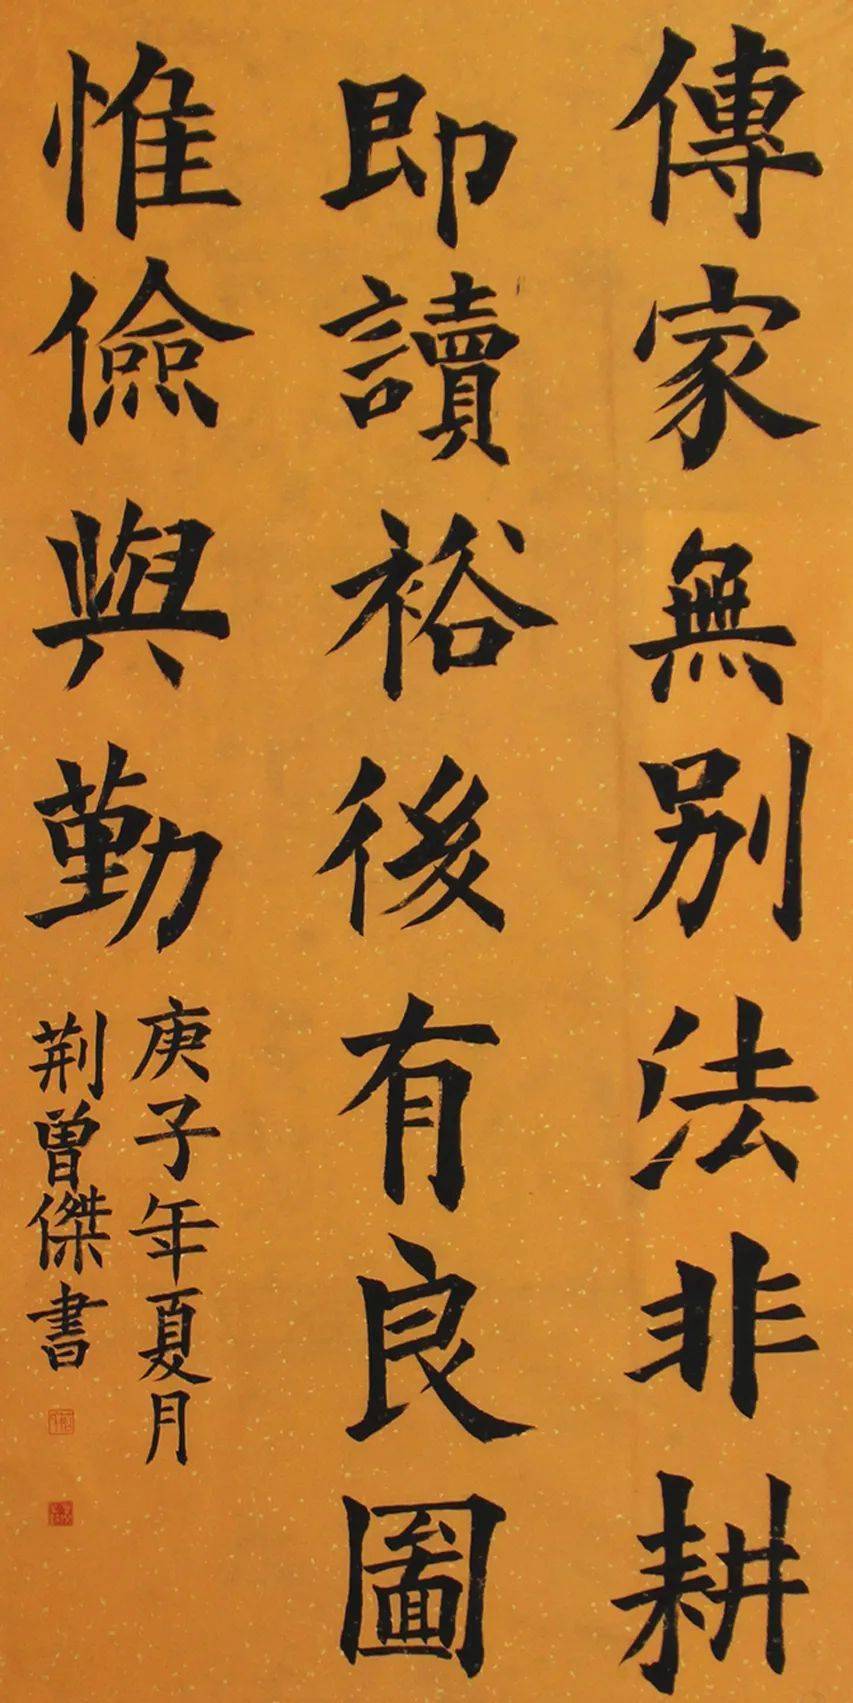 傳家無別法非耕
即讀裕後有良圖
惟儉與勤
庚子年夏月
荆曾傑書